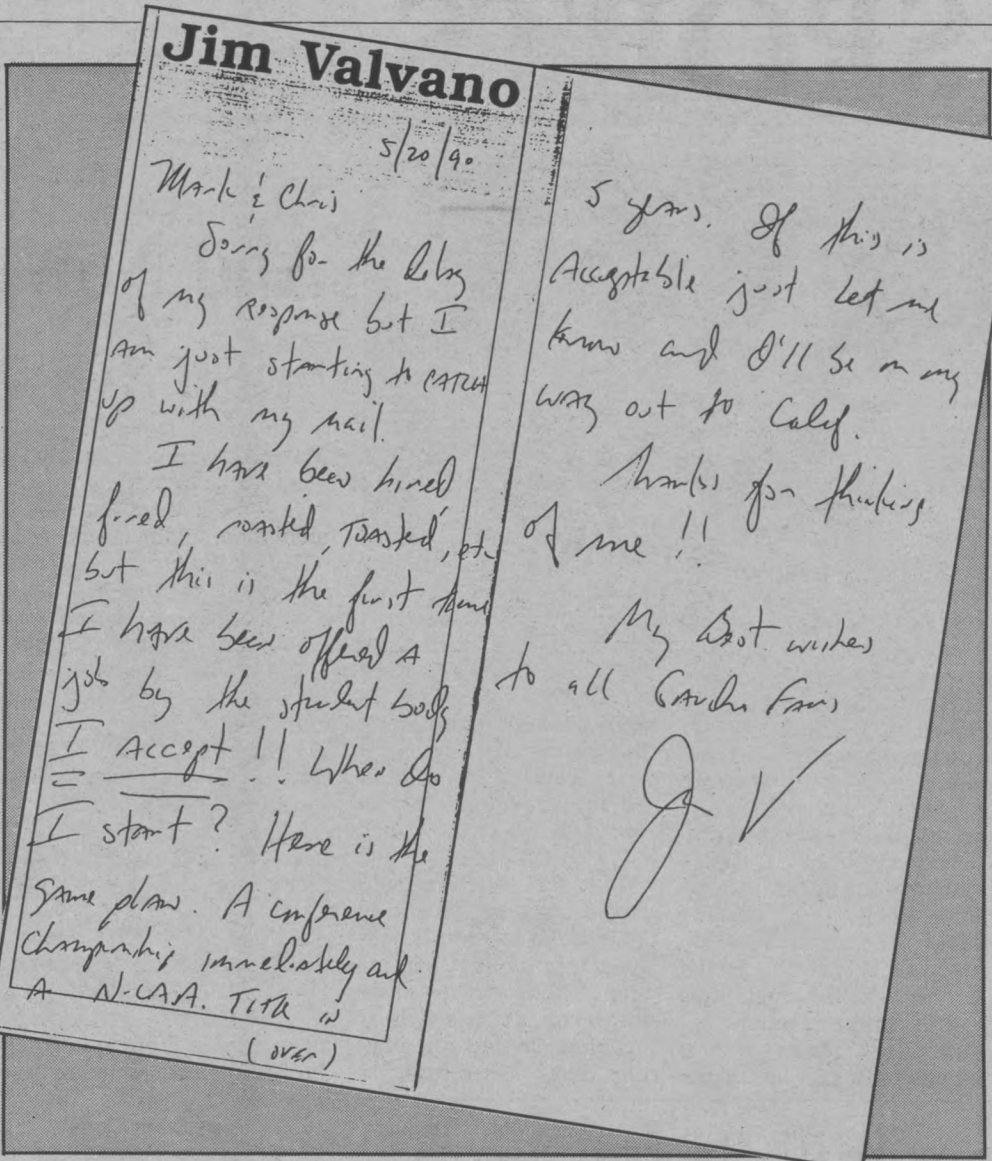 Jim Valvano
5/20/90
Mark & Chris
Sorry for the Delay
of my response but I
am just starting to CATCH
up with my mail.
I have been hired,
fired, roasted, TOASTED, etc
but this is the first time
I have been offered A
job by the student body
I Accept!! When do
I start? Here is the
game plan. A conference
Championship immediately and
A N.C.A.A. Title in
(over)
5 years. If this is
Acceptable just Let me
know and I'll be on my
way out to Calif.
Thanks for thinking
of me!!
My Best wishes
to all Gaucho Fans
J V